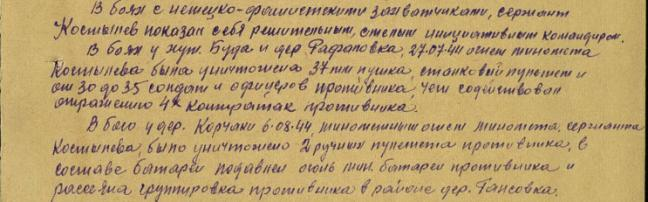 В боях с немецко-фашистскими захватчиками, сержант
Костылев показал себя решительным, смелым инициативным командиром.
В боях у хут. Буда и дер. Рафаловка, 27.07.44 огнем миномета
Костылева была уничтожена 37 мм пушка, станковый пулемет и
от 30 до 35 солдат и офицеров противника, чем содействовал
отражению 4х контратак противника.
В бою у дер. Корчаки 6.08.44, минометным огнем миномета, сержанта
Костылева, было уничтожено 2 ручных пулемета противника, в
составе батареи подавлен огонь мин. батареи противника и
рассеяна группировка противника в районе дер. Гансовка.